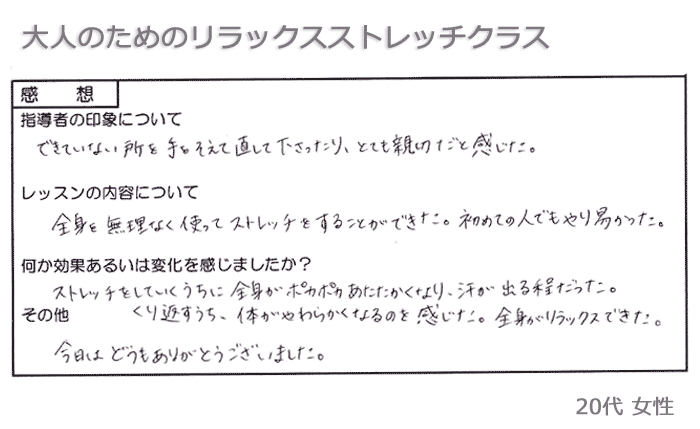 大人のためのリラックスストレッチクラス
感 想
指導者の印象について
できていない所を手をそえて直して下さったり、とても親切だと感じた。
レッスンの内容について
全身を無理なく使ってストレッチをすることができた。初めての人でもやり易かった。
何か効果あるいは変化を感じましたか？
ストレッチをしていくうちに全身がポカポカあたたかくなり、汗が出る程だった。
その他 くり返すうち、体がやわらかくなるのを感じた。全身がリラックスできた。
今日はどうもありがとうございました。
20代 女性